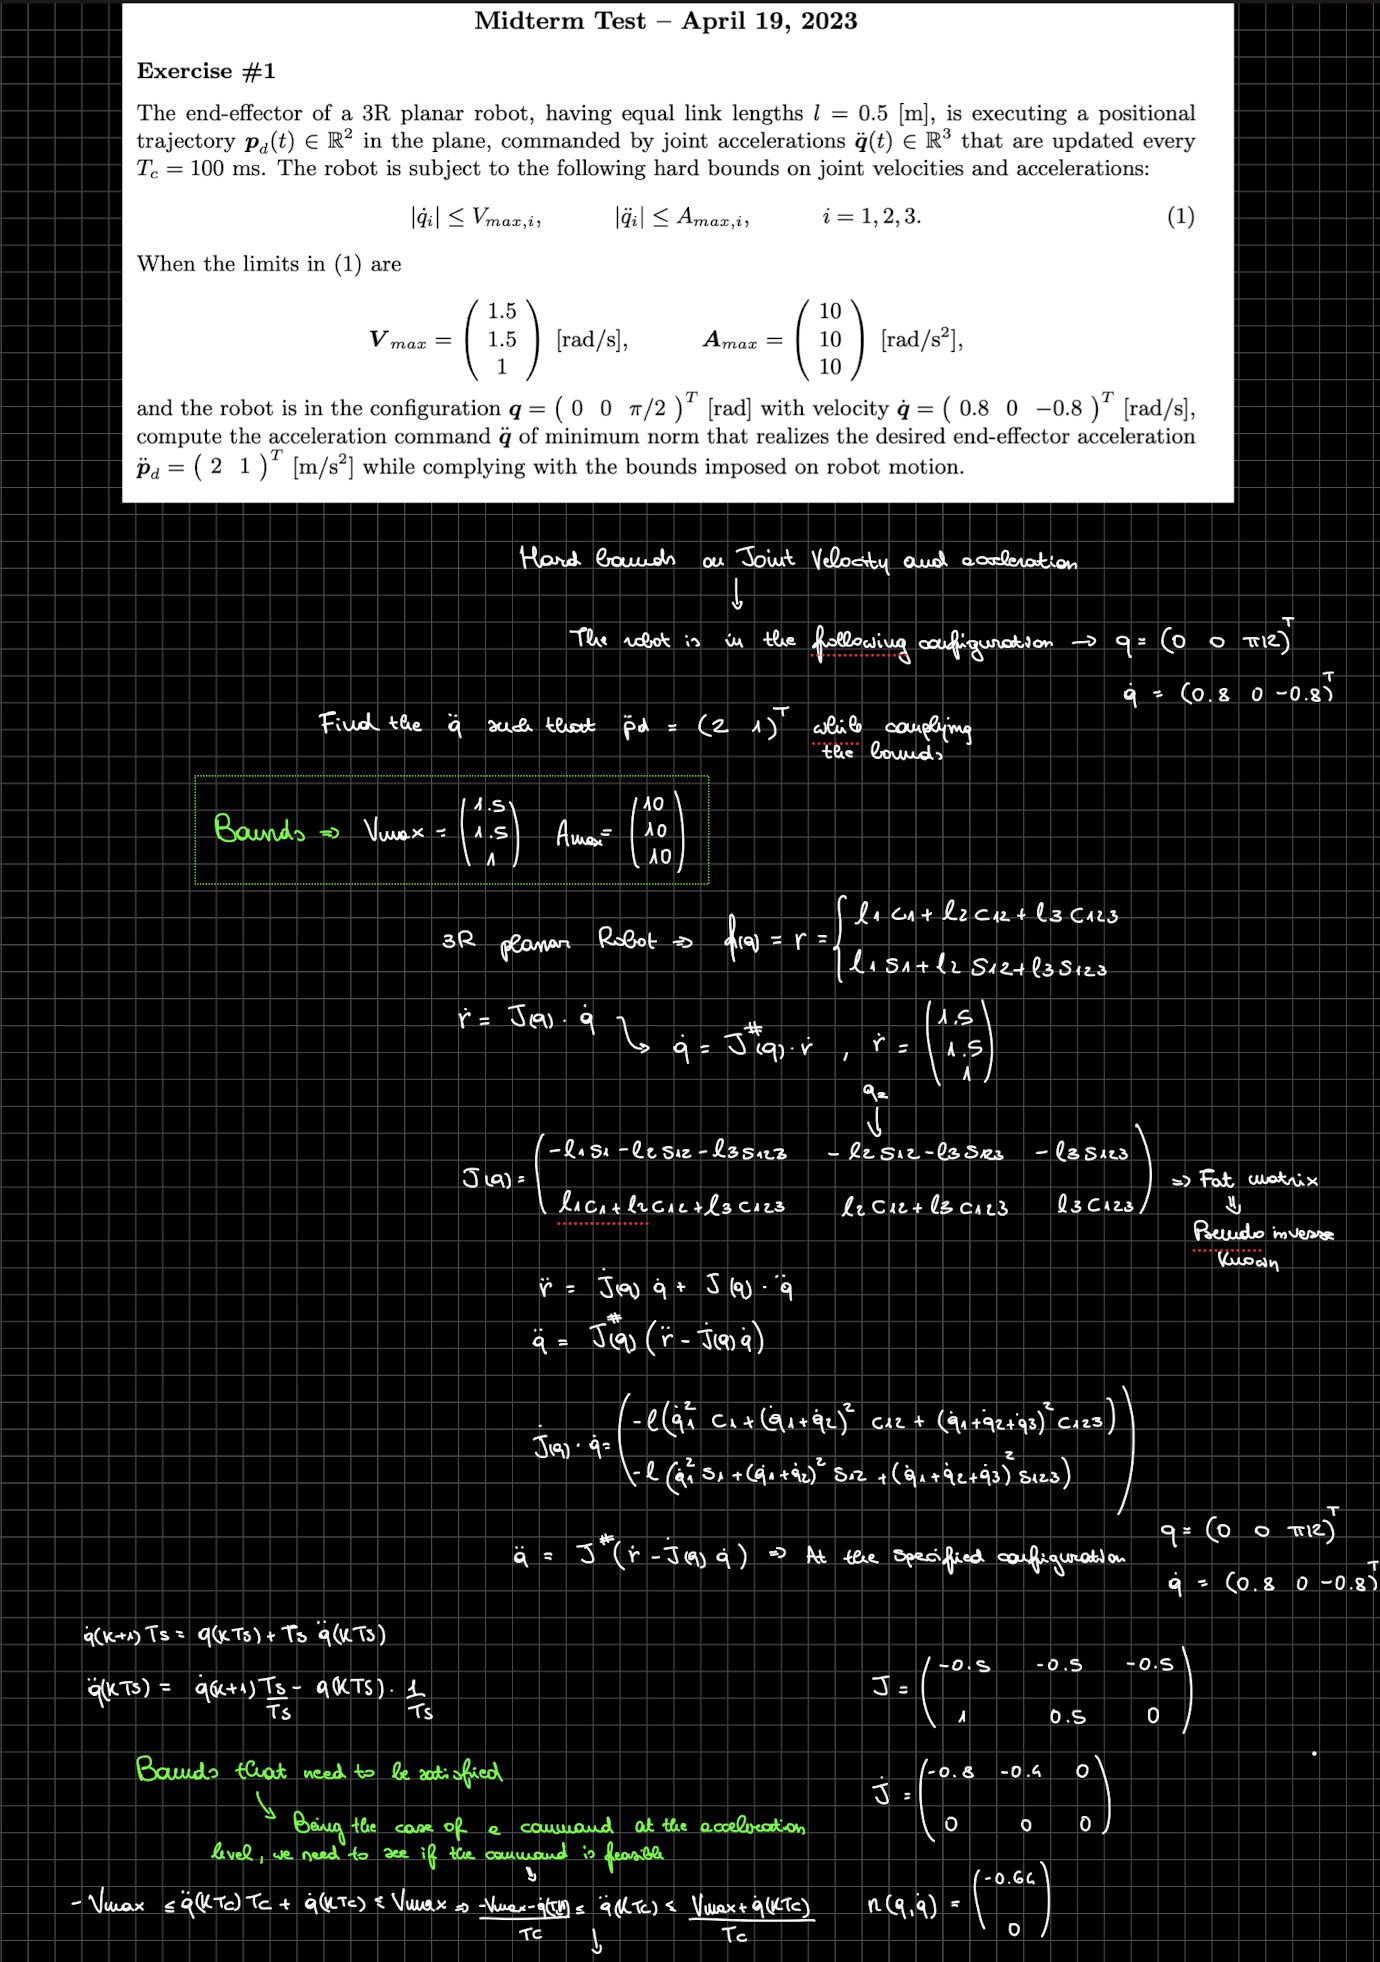 Midterm Test – April 19, 2023
Exercise #1
The end-effector of a 3R planar robot, having equal link lengths l = 0.5 [m], is executing a positional
trajectory p_d(t) ∈ ℝ² in the plane, commanded by joint accelerations q̈(t) ∈ ℝ³ that are updated every
T_c = 100 ms. The robot is subject to the following hard bounds on joint velocities and accelerations:
|q̇_i| ≤ V_{max,i},   |q̈_i| ≤ A_{max,i},   i = 1, 2, 3.   (1)
When the limits in (1) are
V_max = ( 1.5 1.5 1 ) [rad/s],   A_max = ( 10 10 10 ) [rad/s²],
and the robot is in the configuration q = ( 0 0 π/2 )^T [rad] with velocity q̇ = ( 0.8 0 −0.8 )^T [rad/s],
compute the acceleration command q̈ of minimum norm that realizes the desired end-effector acceleration
p̈_d = ( 2 1 )^T [m/s²] while complying with the bounds imposed on robot motion.
Hard bounds on Joint Velocity and acceleration
↓
The robot is in the following configuration → q = (0 0 π/2)^T
q̇ = (0.8 0 -0.8)^T
Find the q̈ such that p̈d = (2 1)^T while complying
the bounds
Bounds ⇒ Vmax = ( 1.5 1.5 1 ) Amax = ( 10 10 10 )
3R planar Robot ⇒ f(q) = r = { l1 C1 + l2 C12 + l3 C123
l1 S1 + l2 S12 + l3 S123
ṙ = J(q) · q̇
q̇ = J^#(q) · ṙ , ṙ = ( 1.5 1.5 1 )
q=
↓
J(q) = ( -l1 S1 - l2 S12 - l3 S123   - l2 S12 - l3 S123   - l3 S123
l1 C1 + l2 C12 + l3 C123   l2 C12 + l3 C123   l3 C123 ) ⇒ Fat matrix
⇓
Pseudo inverse
Known
r̈ = J̇(q) q̇ + J(q) · q̈
q̈ = J^#(q) (r̈ - J̇(q) q̇)
J̇(q) · q̇ = ( -l(q̇1² C1 + (q̇1+q̇2)² C12 + (q̇1+q̇2+q̇3)² C123)
-l (q̇1² S1 + (q̇1+q̇2)² S12 + (q̇1+q̇2+q̇3)² S123) )
q̈ = J^# (r̈ - J̇(q) q̇) ⇒ At the specified configuration
q = (0 0 π/2)^T
q̇ = (0.8 0 -0.8)^T
q̇(K+1) Ts = q(KTs) + Ts q̈(KTs)
q̈(KTs) = q̇(K+1) Ts/Ts - q(KTs) · 1/Ts
J = ( -0.5 -0.5 -0.5
1 0.5 0 )
Bounds that need to be satisfied
Being the case of a command at the acceleration
level, we need to see if the command is feasible
J̇ = ( -0.8 -0.4 0
0 0 0 )
- Vmax ≤ q̈(KTc) Tc + q̇(KTc) ≤ Vmax ⇒ (-Vmax - q̇(KTc))/Tc ≤ q̈(KTc) ≤ (Vmax + q̇(KTc))/Tc
↓
n(q, q̇) = ( -0.64
0 )